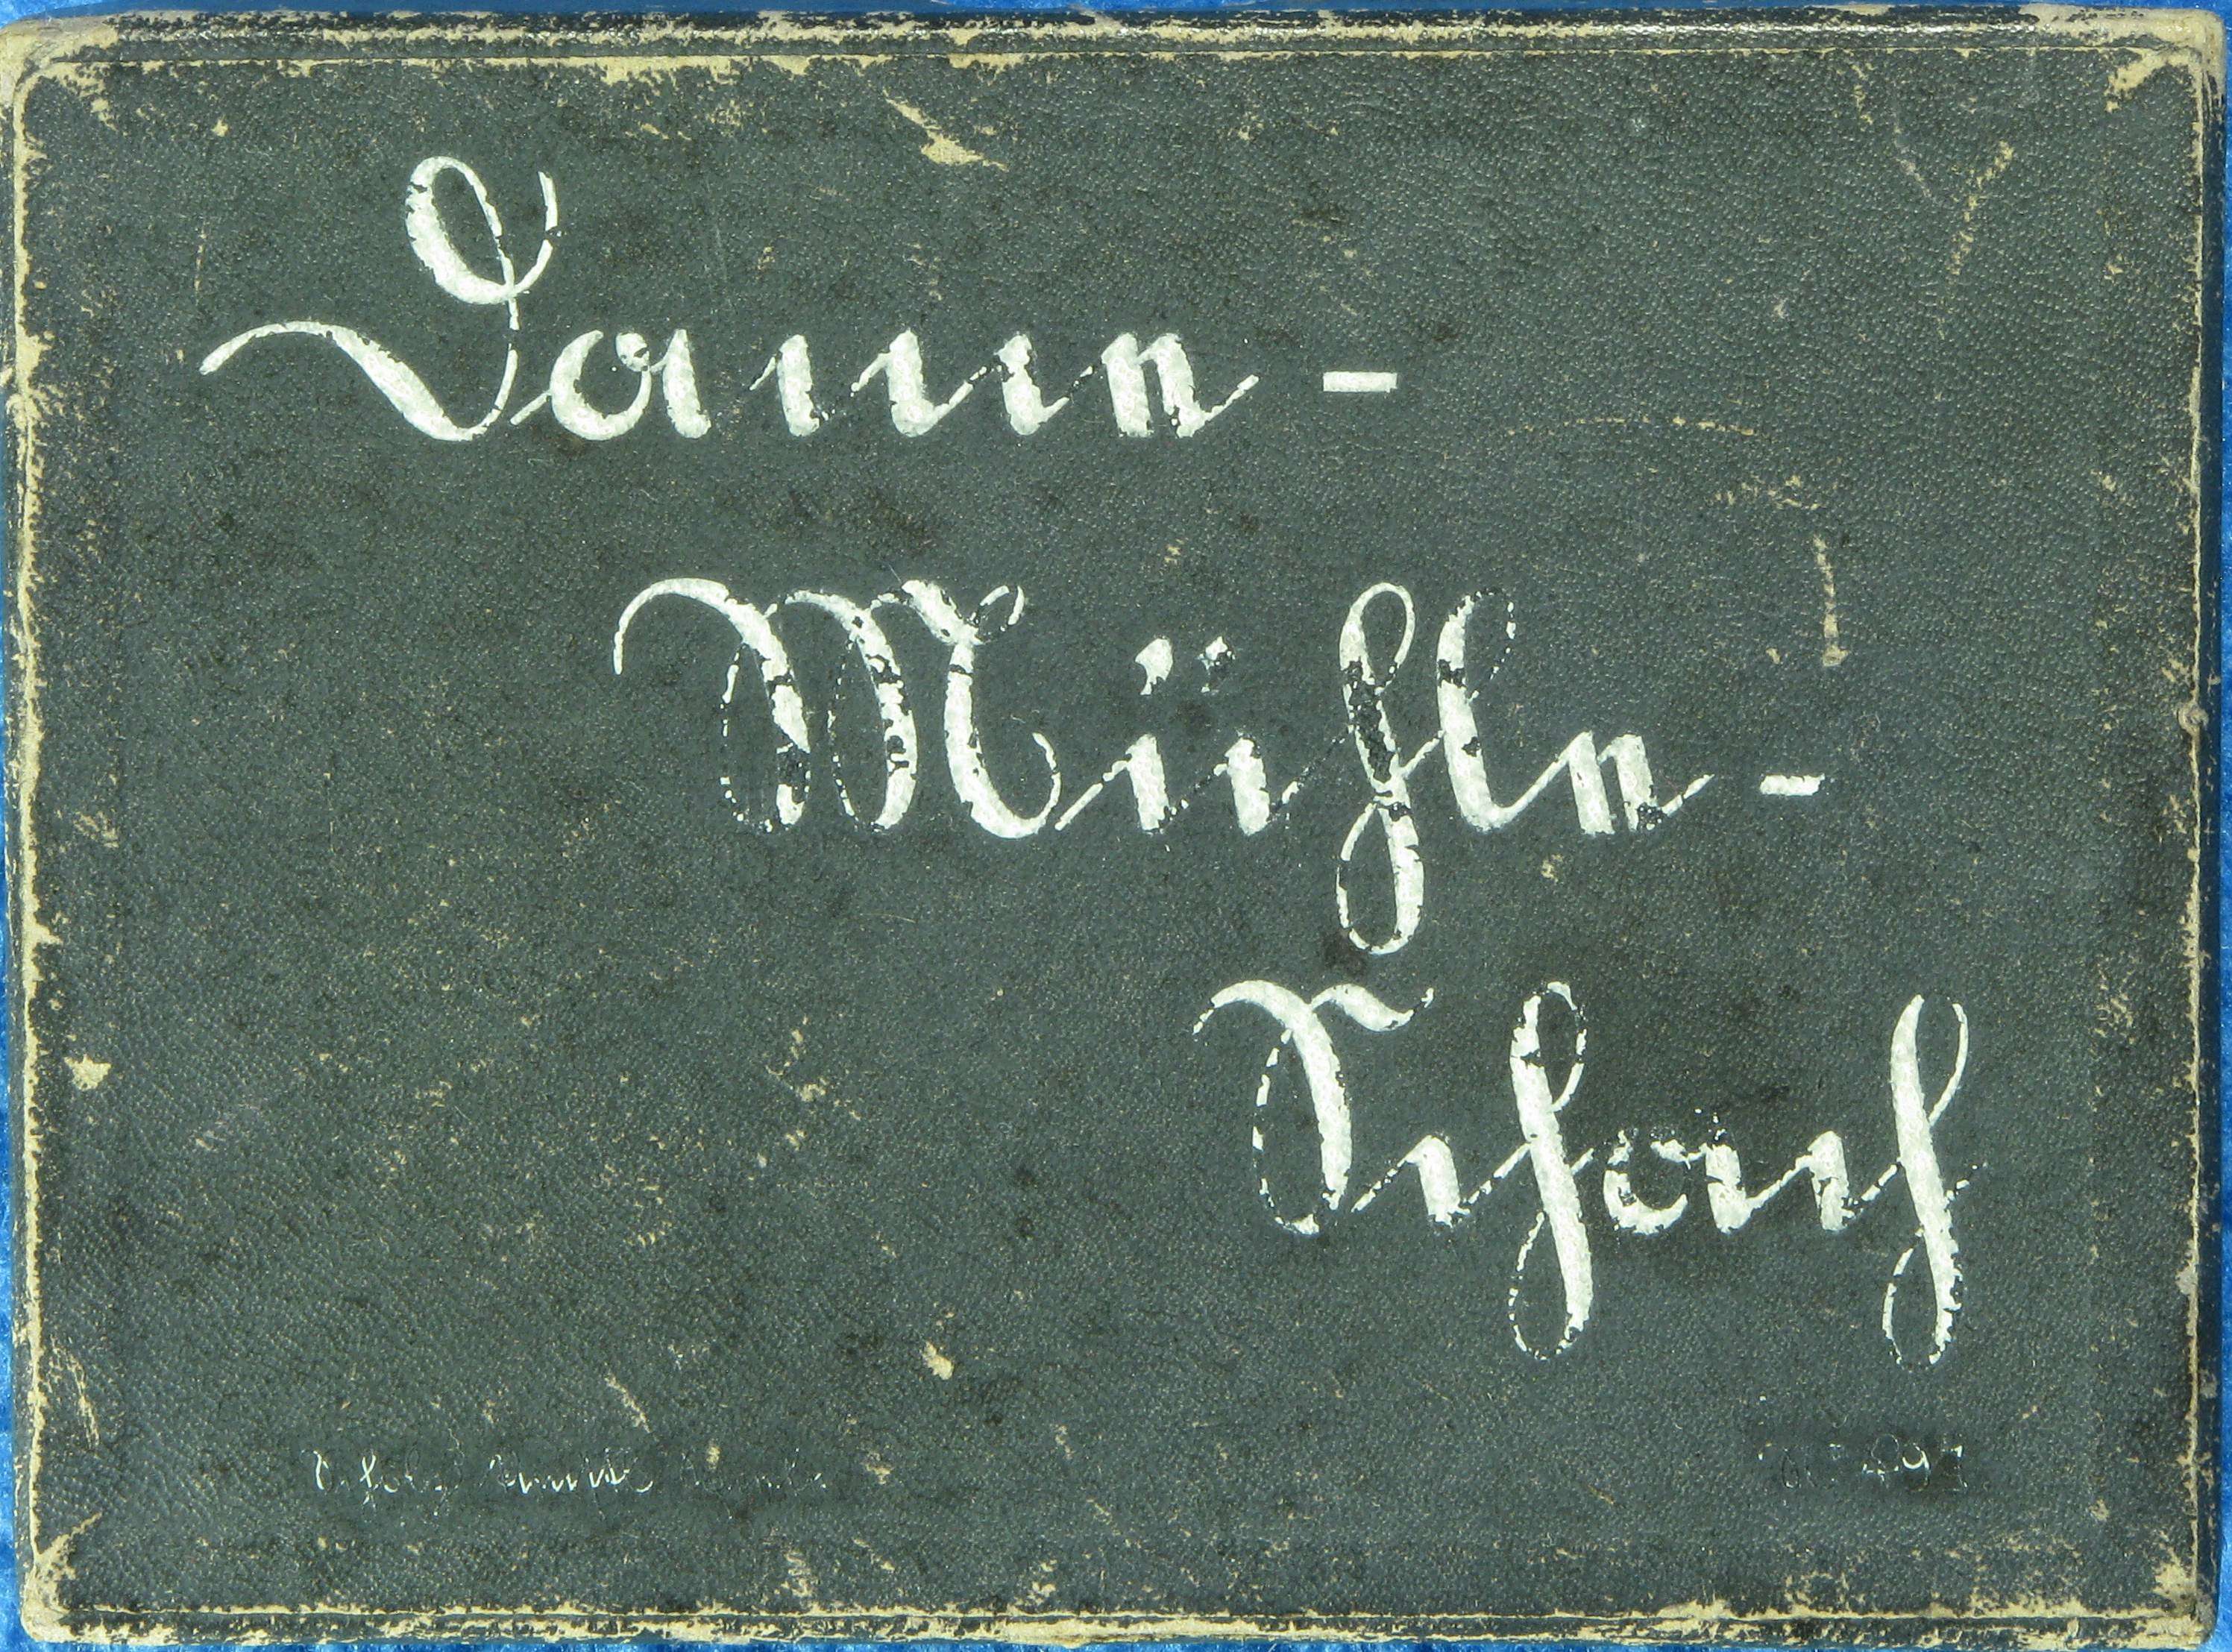 Dame -
Mühle -
Schach